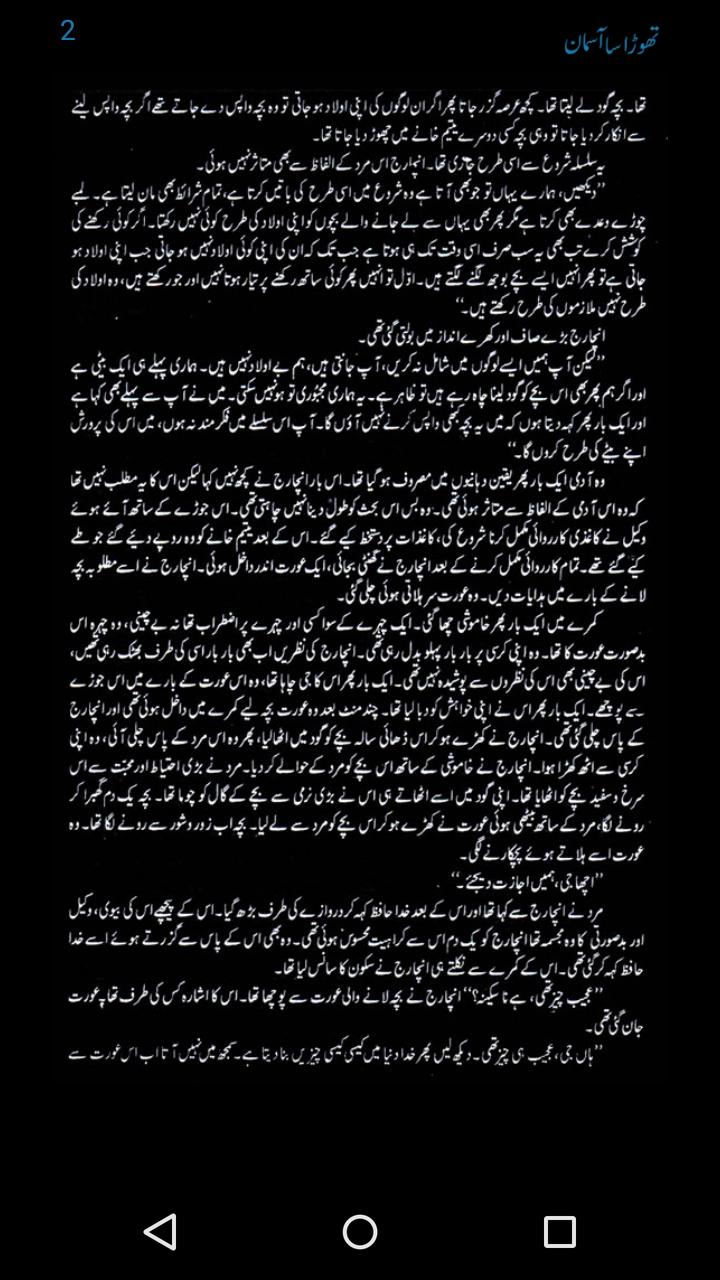 2
تھوڑا سا آسمان
تھا۔ بچہ گود لے لیتا تھا۔ کچھ عرصہ گزر جاتا پھر اگر ان لوگوں کی اپنی اولاد ہو جاتی تو وہ بچہ واپس دے جاتے تھے اگر بچہ واپس لینے
سے انکار کر دیا جاتا تو وہی بچہ کسی دوسرے یتیم خانے میں چھوڑ دیا جاتا تھا۔
یہ سلسلہ شروع سے اسی طرح جاری تھا۔ انچارج اس مرد کے الفاظ سے بھی متاثر نہیں ہوئی۔
’’دیکھیں، ہمارے یہاں تو جو بھی آتا ہے وہ شروع میں اسی طرح کی باتیں کرتا ہے، تمام شرائط بھی مان لیتا ہے۔ لمبے
چوڑے وعدے بھی کرتا ہے مگر پھر بھی یہاں سے لے جانے والے بچوں کو اپنی اولاد کی طرح کوئی نہیں رکھتا۔ اگر کوئی رکھنے کی
کوشش کرے تب بھی یہ سب صرف اسی وقت تک ہی ہوتا ہے جب تک کہ ان کی اپنی کوئی اولاد نہیں ہو جاتی جب اپنی اولاد ہو
جاتی ہے تو پھر انہیں ایسے بچے بوجھ لگنے لگتے ہیں۔ اوّل تو انہیں پھر کوئی ساتھ رکھنے پر تیار ہوتا نہیں اور جو رکھتے ہیں، وہ اولاد کی
طرح نہیں ملازموں کی طرح رکھتے ہیں۔‘‘
انچارج بڑے صاف اور کھرے انداز میں بولتی گئی تھی۔
’’لیکن آپ ہمیں ایسے لوگوں میں شامل نہ کریں، آپ جانتی ہیں، ہم بے اولاد نہیں ہیں۔ ہماری پہلے ہی ایک بیٹی ہے
اور اگر ہم پھر بھی اس بچے کو گود لینا چاہ رہے ہیں تو ظاہر ہے۔ یہ ہماری مجبوری تو ہو نہیں سکتی۔ میں نے آپ سے پہلے بھی کہا ہے
اور ایک بار پھر کہہ دیتا ہوں کہ میں یہ بچہ بھی واپس کرنے نہیں آؤں گا۔ آپ اس سلسلے میں فکر مند نہ ہوں، میں اس کی پرورش
اپنے بیٹے کی طرح کروں گا۔‘‘
وہ آدمی ایک بار پھر یقین دہانیوں میں مصروف ہو گیا تھا۔ اس بار انچارج نے کچھ نہیں کہا لیکن اس کا یہ مطلب نہیں تھا
کہ وہ اس آدمی کے الفاظ سے متاثر ہوئی تھی۔ وہ بس اس بحث کو طول دینا نہیں چاہتی تھی۔ اس جوڑے کے ساتھ آئے ہوئے
وکیل نے کاغذی کارروائی مکمل کرنا شروع کی، کاغذات پر دستخط کیے گئے۔ اس کے بعد یتیم خانے کو وہ روپے دیئے گئے جو طے
کیے گئے تھے۔ تمام کارروائی مکمل کرنے کے بعد انچارج نے گھنٹی بجائی، ایک عورت اندر داخل ہوئی۔ انچارج نے اسے مطلوبہ بچہ
لانے کے بارے میں ہدایات دیں۔ وہ عورت سر ہلاتی ہوئی چلی گئی۔
کمرے میں ایک بار پھر خاموشی چھا گئی۔ ایک چہرے کے سوا کسی اور چہرے پر اضطراب تھا نہ بے چینی، وہ چہرہ اس
بدصورت عورت کا تھا۔ وہ اپنی کرسی پر بار بار پہلو بدل رہی تھی۔ انچارج کی نظریں اب بھی بار بار اسی کی طرف بھٹک رہی تھیں،
اس کی بے چینی بھی اس کی نظروں سے پوشیدہ نہیں تھی۔ ایک بار پھر اس کا جی چاہا تھا، وہ اس عورت کے بارے میں اس جوڑے
سے پوچھے۔ ایک بار پھر اس نے اپنی خواہش کو دبا لیا تھا۔ چند منٹ بعد وہ عورت بچہ لیے کمرے میں داخل ہوئی تھی اور انچارج
کے پاس چلی گئی تھی۔ انچارج نے کھڑے ہو کر اس ڈھائی سالہ بچے کو گود میں اٹھا لیا، پھر وہ اس مرد کے پاس چلی آئی، وہ اپنی
کرسی سے اٹھ کھڑا ہوا۔ انچارج نے خاموشی کے ساتھ اس بچے کو مرد کے حوالے کر دیا۔ مرد نے بڑی احتیاط اور محبت سے اس
سرخ و سفید بچے کو اٹھایا تھا۔ اپنی گود میں اسے اٹھاتے ہی اس نے بڑی نرمی سے بچے کے گال کو چوما تھا۔ بچہ یک دم گھبرا کر
رونے لگا، مرد کے ساتھ بیٹھی ہوئی عورت نے کھڑے ہو کر اس بچے کو مرد سے لے لیا۔ بچہ اب زور و شور سے رونے لگا تھا۔ وہ
عورت اسے ہلاتے ہوئے پچکارنے لگی۔
’’اچھا جی، ہمیں اجازت دیجئے۔‘‘
مرد نے انچارج سے کہا تھا اور اس کے بعد خدا حافظ کہہ کر دروازے کی طرف بڑھ گیا۔ اس کے پیچھے اس کی بیوی، وکیل
اور بدصورتی کا وہ مجسمہ تھا انچارج کو یک دم اس سے کراہیت محسوس ہوئی تھی۔ وہ بھی اس کے پاس سے گزرتے ہوئے اسے خدا
حافظ کہہ کر گئی تھی۔ اس کے کمرے سے نکلتے ہی انچارج نے سکون کا سانس لیا تھا۔
’’عجیب چیز تھی، ہے نا سکینہ؟‘‘ انچارج نے بچہ لانے والی عورت سے پوچھا تھا۔ اس کا اشارہ کس کی طرف تھا یہ عورت
جان گئی تھی۔
’’ہاں جی، عجیب ہی چیز تھی۔ دیکھ لیں پھر خدا دنیا میں کیسی کیسی چیزیں بنا دیتا ہے۔ سمجھ میں نہیں آتا اب اس عورت سے